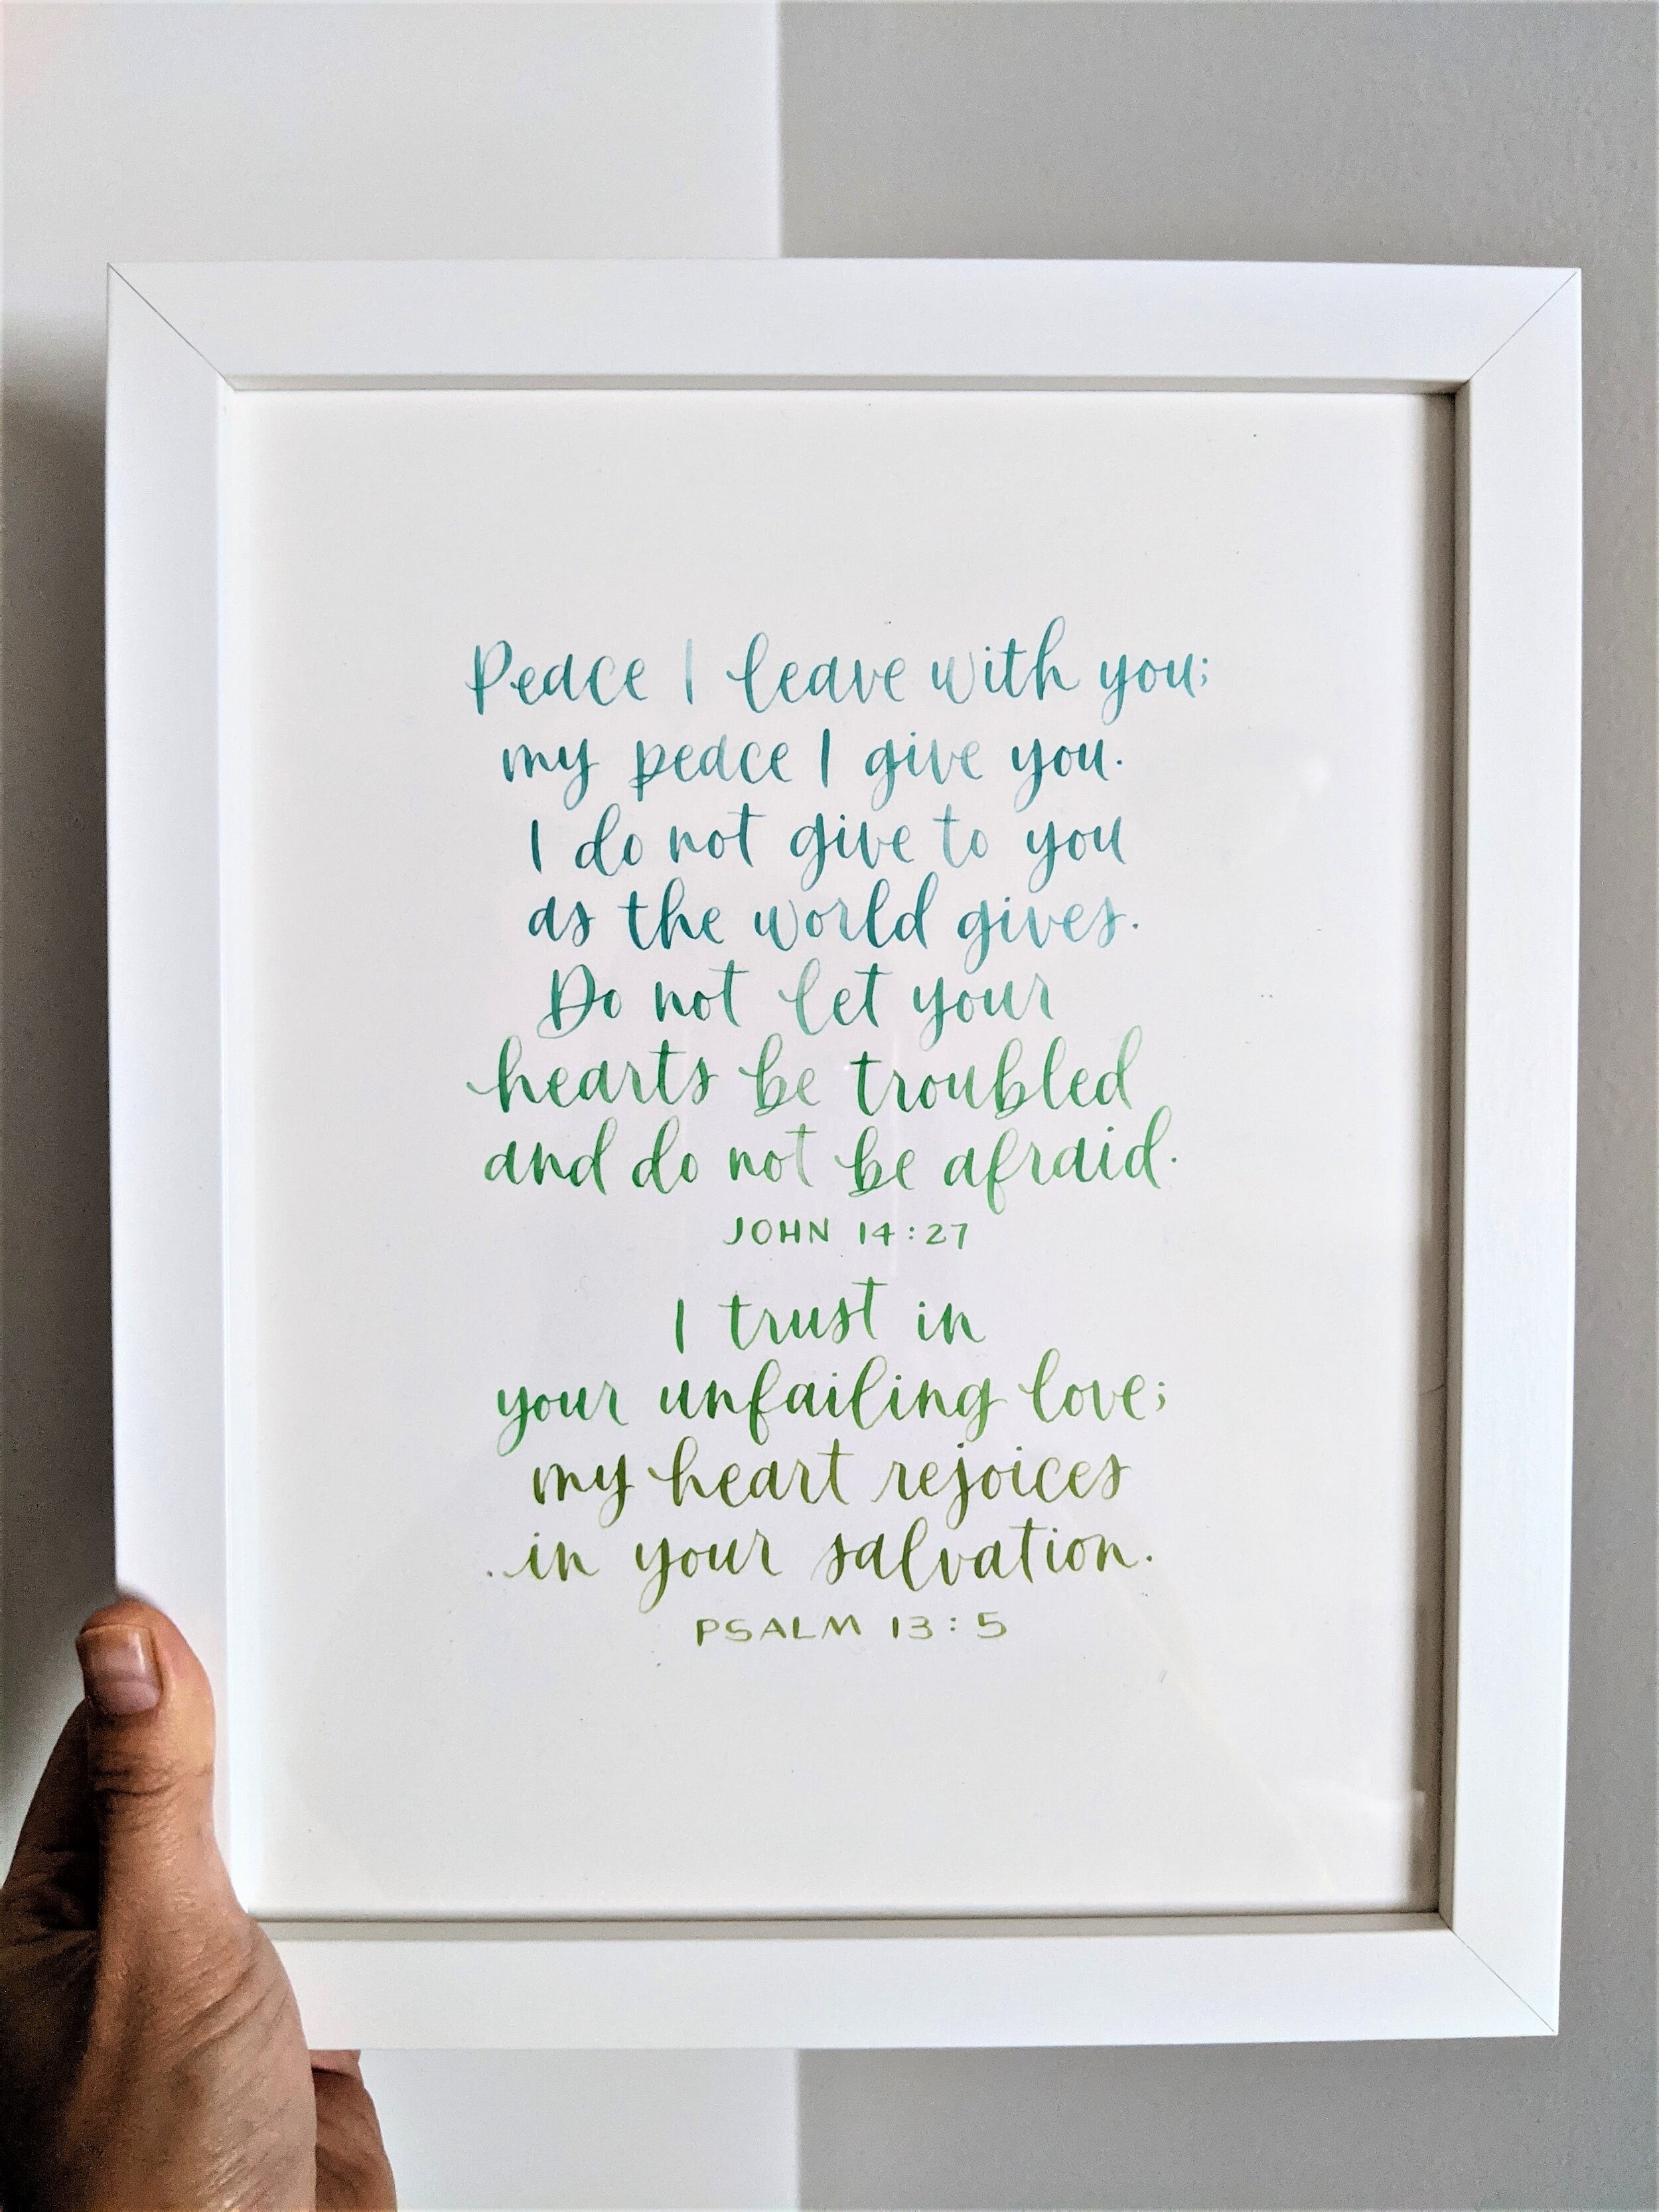 Peace I leave with you;
my peace I give you.
I do not give to you
as the world gives.
Do not let your
hearts be troubled
and do not be afraid.
JOHN 14:27
I trust in
your unfailing love;
my heart rejoices
in your salvation.
PSALM 13:5